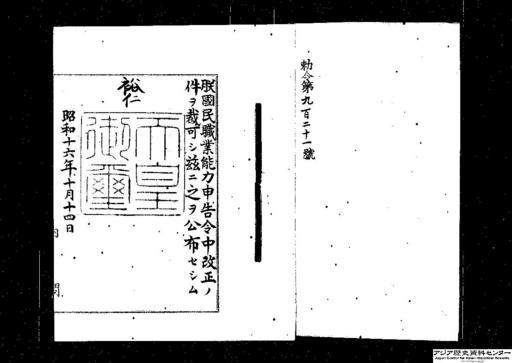 勅令第九百二十一號
朕國民職業能力申告令中改正ノ
件ヲ裁可シ茲ニ之ヲ公布セシム
裕仁
天皇御璽
昭和十六年十月十四日
内閣
アジア歴史資料センター
Japan Center for Asian Historical Records